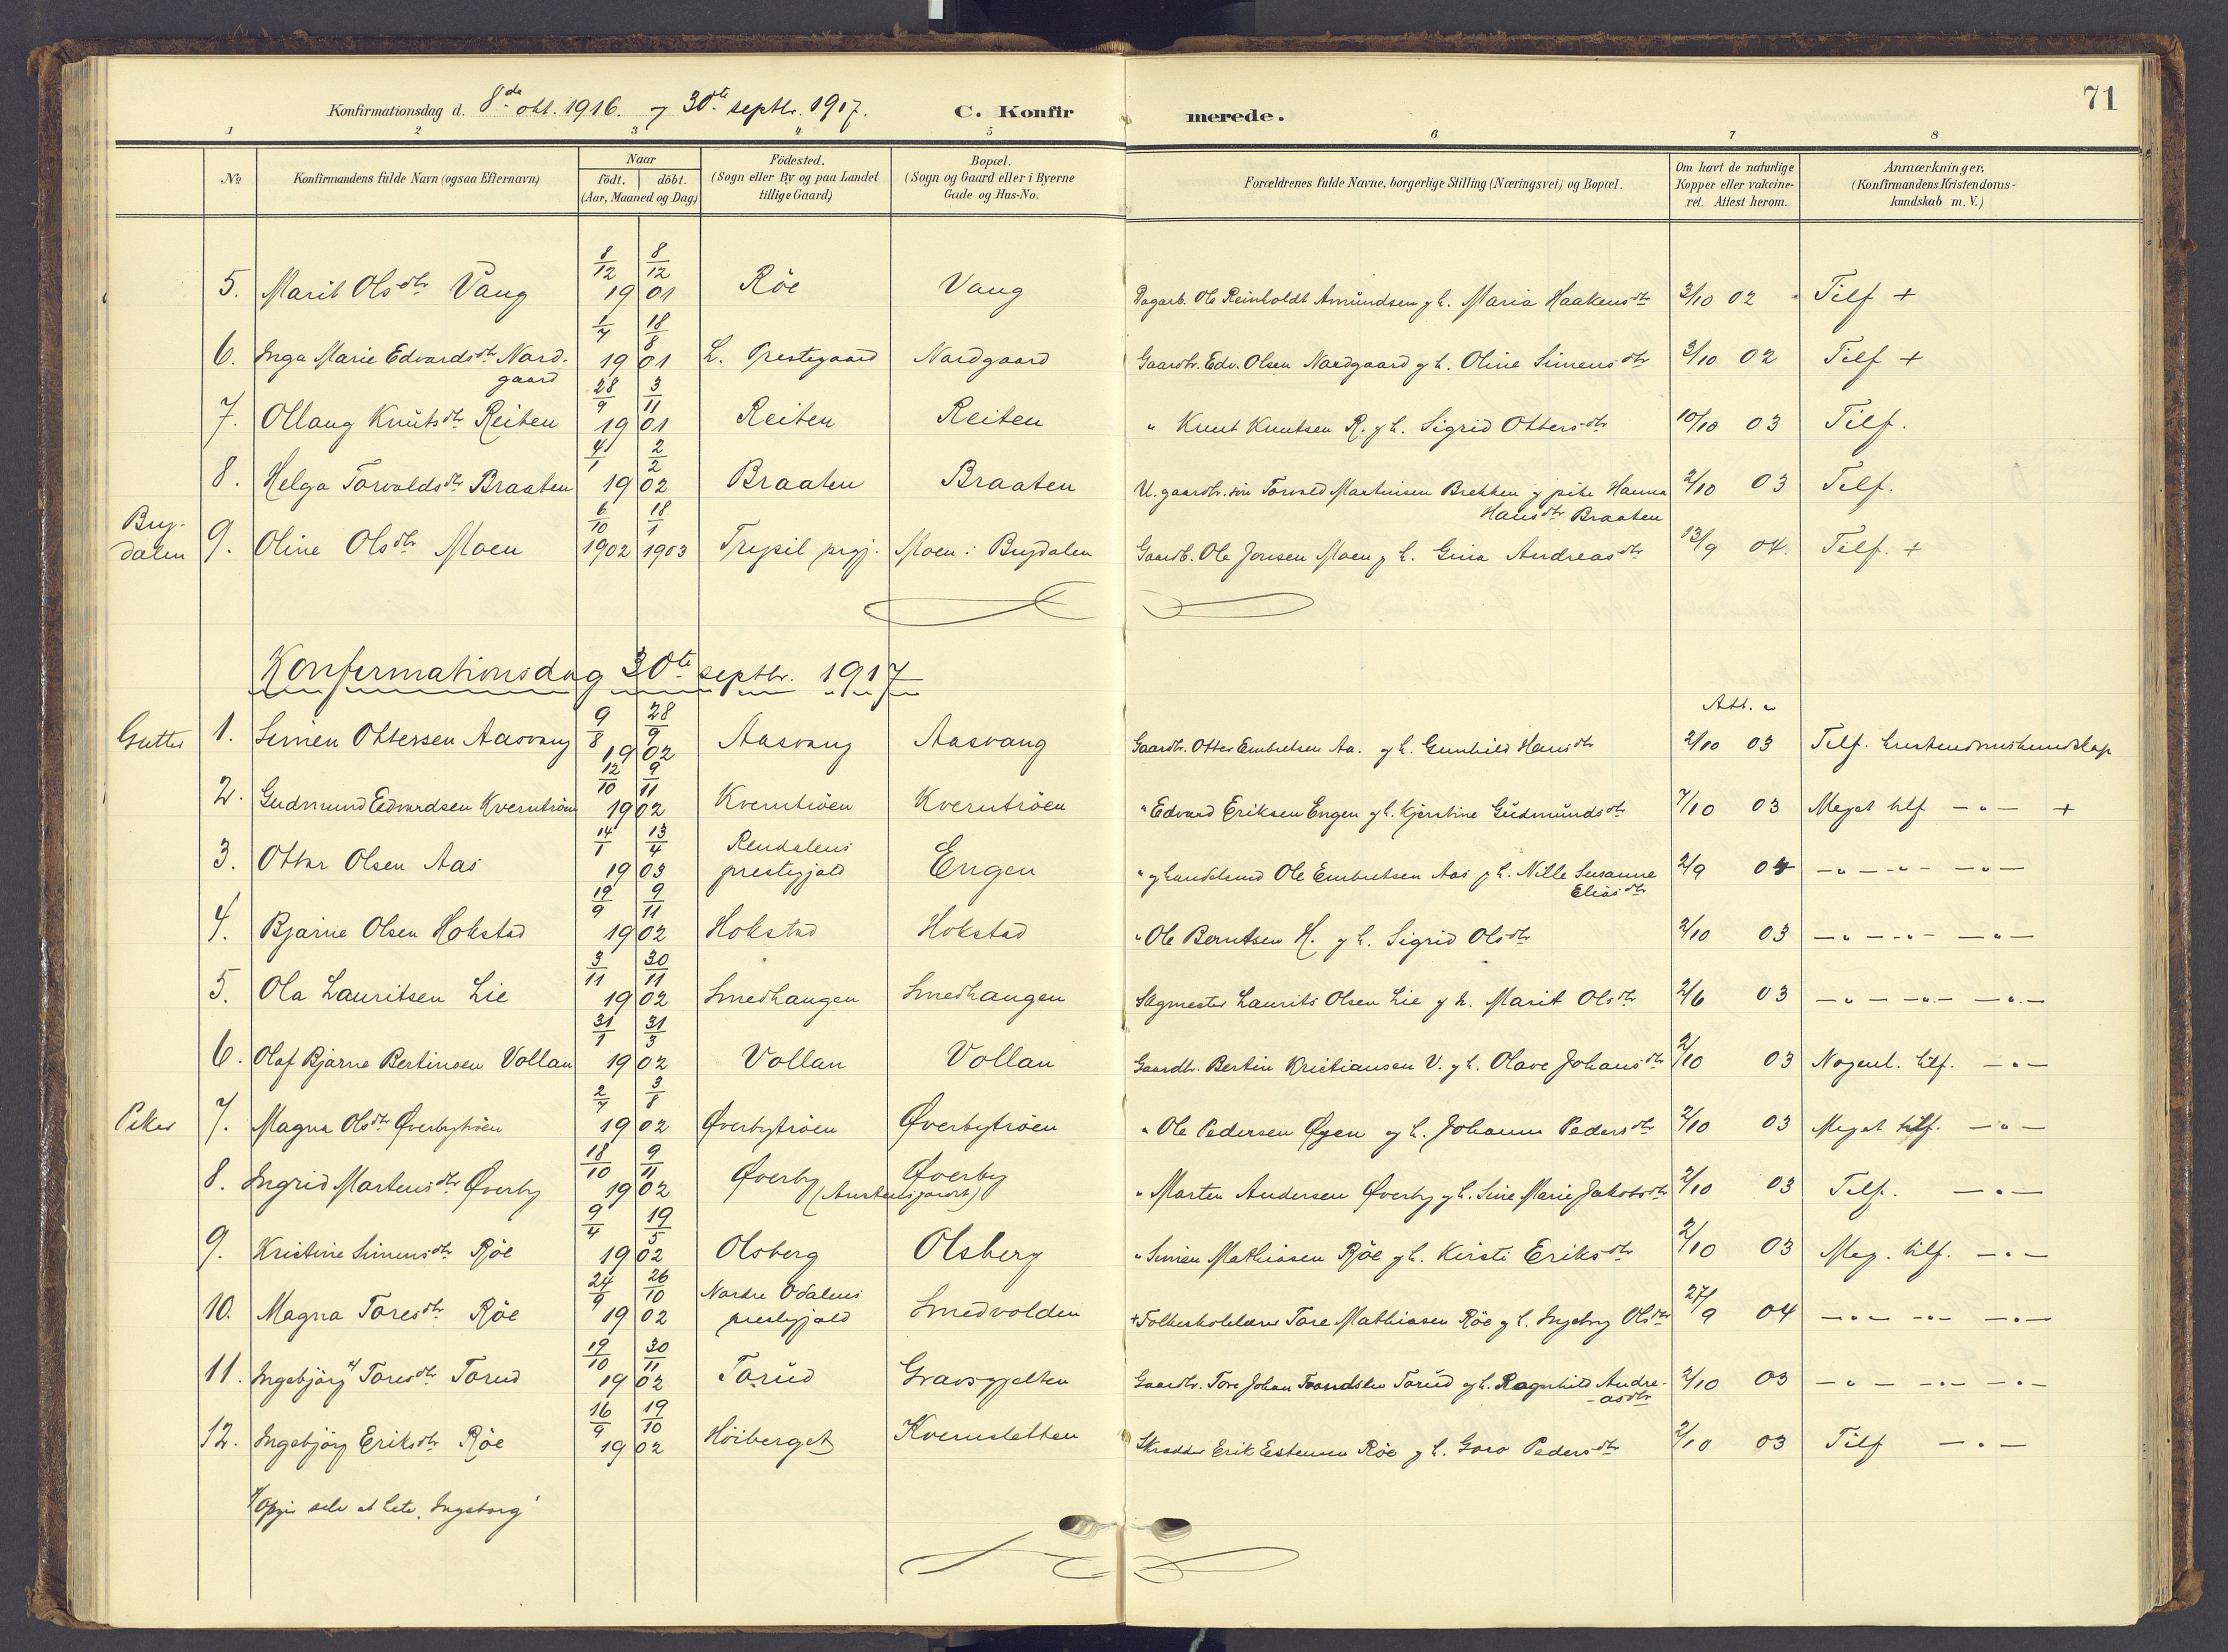 Konfirmationsdag d. 8de okt. 1916. og 30te septbr. 1917.
C. Konfirmerede.
71
1 2 3 4 5 6 7 8
№
Konfirmandens fulde Navn (ogsaa Efternavn)
Naar
födt. döbt.
(Aar, Maaned og Dag)
Födested.
(Sogn eller By og paa Landet
tillige Gaard)
Bopæl.
(Sogn og Gaard eller i Byerne
Gade og Hus-No.
Forældrenes fulde Navne, borgerlige Stilling (Næringsvei) og Bopæl.
Om havt de naturlige
Kopper eller vakcine-
ret. Attest herom.
Anmærkninger.
(Konfirmandens Kristendoms-
kundskab m. V.)
5. Marit Olsdtr. Vang 8/12 8/12 1901 Röe Vang Dagarb. Ole Reinholdt Amundsen og h. Maria Haakensdtr 3/10 02 Tilf +
6. Inga Marie Edvardsdtr. Nord-
gaard 1/7 18/8 1901 L. Prestegaard Nordgaard Gaardbr. Edv. Olsen Nordgaard og h. Oline Simensdtr 3/10 02 Tilf +
7. Ollaug Knutsdtr. Reiten 28/9 3/11 1901 Reiten Reiten " Knut Knutsen R. og h. Sigrid Ottersdtr 10/10 03 Tilf.
8. Helga Torvaldsdtr. Braaten 4/1 2/2 1902 Braaten Braaten U. gaardbr. sön Torvald Martinsen Brekken og pike Hanna
Hansdtr Braaten 2/10 03 Tilf.
Bry-
dalen 9. Oline Olsdtr. Moen 6/10 1902 18/1 1903 Trysil prgj. Moen i Brydalen Gaardb. Ole Jonsen Moen og h. Gina Andreasdtr 13/9 04. Tilf. +
Konfirmationsdag 30te septbr. 1917
Att. "
Gutter 1. Simen Ottersen Aasvang 9/8 28/9 1902 Aasvang Aasvang Gaardbr. Otter Embretsen Aa. og h. Gunhild Hansdtr 2/10 03 Tilf. kristendomskundskap
2. Gudmund Edvardsen Kverntröen 12/10 9/11 1902 Kverntröen Kverntröen " Edvard Eriksen Engen og h. Kjerstine Gudmundsdtr 7/10 03 Meget tilf — " — +
3. Ottar Olsen Aas 14/1 13/4 1903 Rendalens
prestegjeld Engen " og handelsmd Ole Embretsen Aas og h. Nille Susanne
Eliasdtr 2/9 04 — " — — " — — " —
4. Bjarne Olsen Hokstad 19/9 9/11 1902 Hokstad Hokstad " Ole Berntsen H. og h. Sigrid Olsdtr 2/10 03 — " — — " — — " —
5. Ola Lauritsen Lie 3/11 30/11 1902 Smedhaugen Smedhaugen Sagmester Laurits Olsen Lie og h. Marit Olsdtr 2/6 03 — " — — " — — " —
6. Olaf Bjarne Bertinsen Vollan 31/1 31/3 1902 Vollan Vollan Gaardbr. Bertin Kristiansen V. og h. Olave Johansdtr 2/10 03 Nogenl. tilf. — " —
Piker 7. Magna Olsdtr. Øverbytröen 2/7 3/8 1902 Øverbytröen Øverbytröen " Ole Pedersen Øyen og h. Johanne Pedersdtr 2/10 03 Meget tilf. — " —
8. Ingrid Martensdtr. Øverby 18/10 9/11 1902 Øverby Øverby " Marten Andersen Øverby og h. Sine Marie Jakobsdtr 2/10 03 Tilf. — " —
9. Kristine Simensdtr. Röe 9/4 19/5 1902 Olsberg Olsberg " Simen Mathiasen Röe og h. Kirsti Eriksdtr 2/10 03 Meg. tilf. — " —
10. Magna Toresdtr. Röe 24/9 26/10 1902 Nordre Odalens
prestegjeld Smedvolden + Folkeskolelærer Tore Mathiasen Röe og h. Ingeborg Olsdtr 27/9 04 — " — — " — — " —
11. Ingebjörg x) Toresdtr. Torud 19/10 30/11 1902 Torud Gravsgjelten Gaardbr. Tore Johan Trondsen Torud og h. Ragnhild Andre-
-asdtr 2/10 03 — " — — " — — " —
12. Ingebjörg Eriksdtr Röe 16/9 19/10 1902 Höiberget Kvernsletten Skrædder Erik Estensen Röe og h. Goro Pedersdtr 2/10 03 Tilf — " —
x) Opgir selv at hete "Ingeborg"